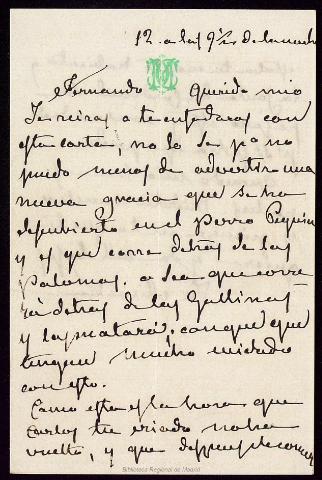 12. a las 9½ de la noche
Fernando Querido mio
Te reiras o te enfadaras con
esta carta, no lo se pº no
puedo menos de advertir una
nueva gracia que se ha
descubierto en el perro Pequin
y es que corre detras de las
palomas. o sea que corre
rá detras de las Gallinas
y las matará. con que que
tengan mucho cuidado
con esto.
Como esta es la hora que
Carlos tu criado no ha
vuelto, y que despues de comer
Biblioteca Regional de Madrid